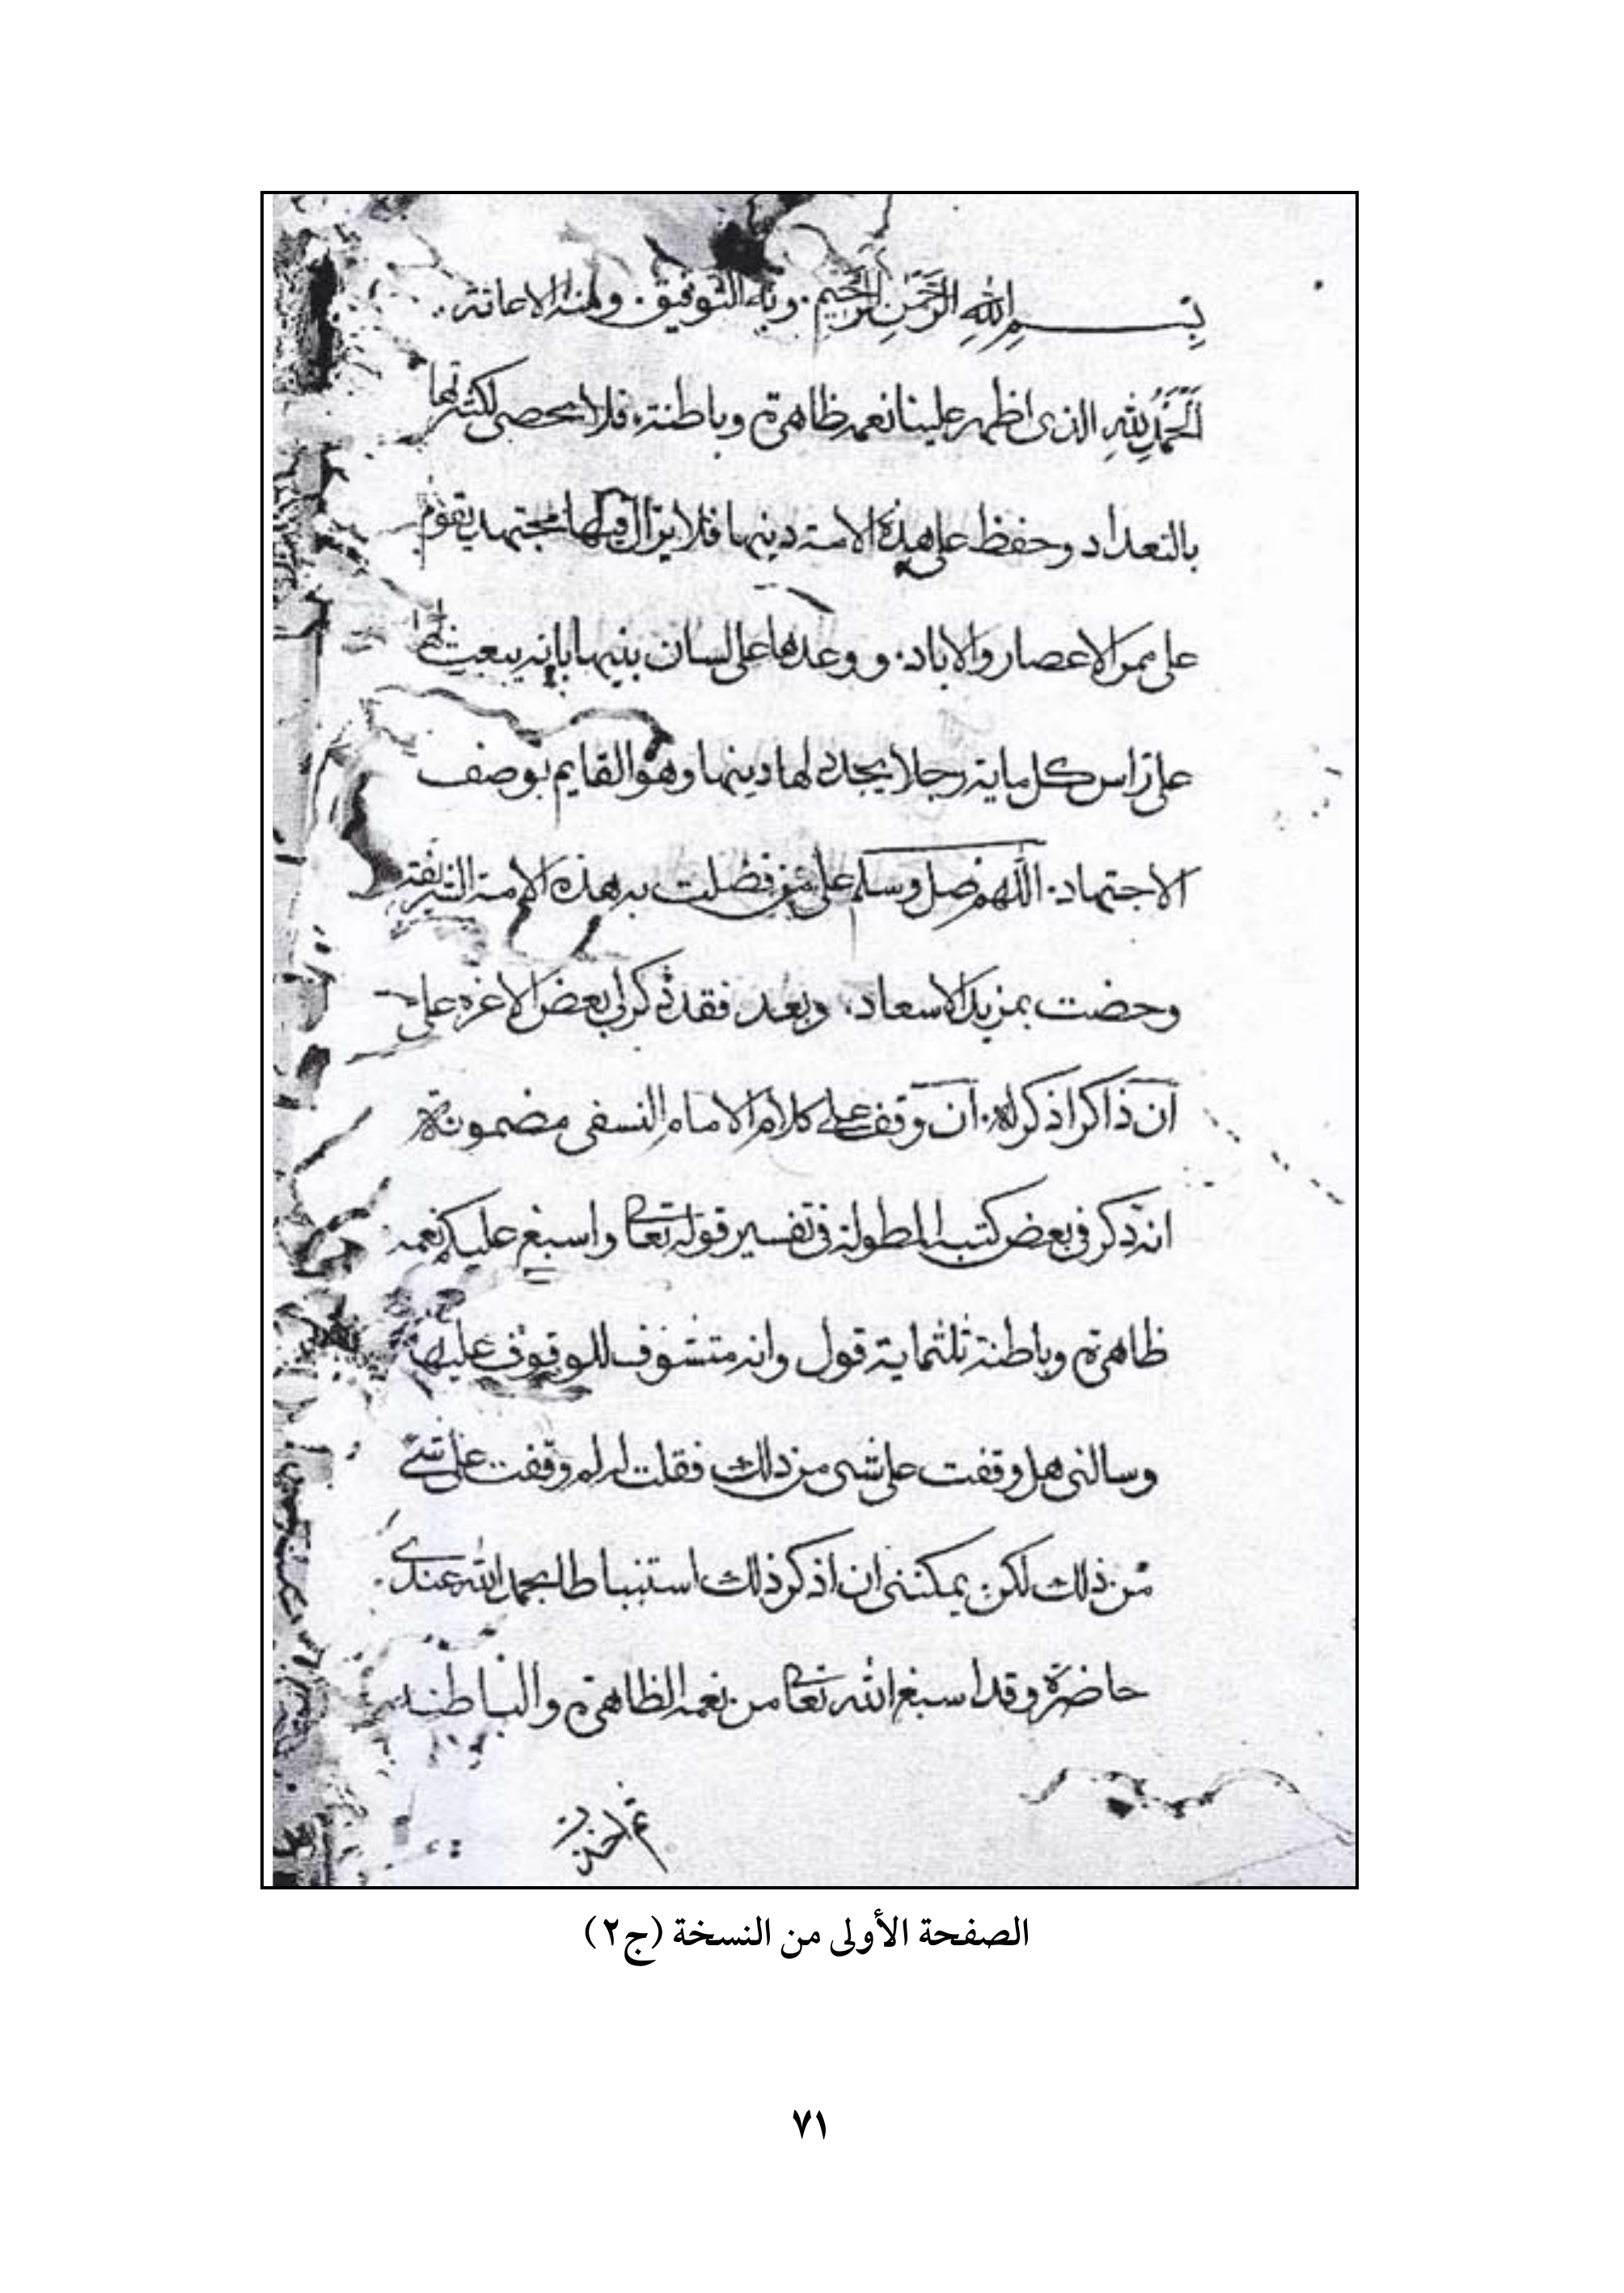 بسم الله الرحمن الرحيم. وبه التوفيق. ومنه الاعانة.
الحمد لله الذى اظهر علينا نعمه ظاهرة وباطنة، فلا تحصى لكثرتها
بالتعداد وحفظ على هذه الامة دينها فلا يزال فيها مجتهد يقوم
على ممر الاعصار والاباد. و وعدها على لسان نبيها بانه يبعث لها
على راس كل ماية رجلا يجدد لها دينها وهو القايم بوصف
الاجتهاد. اللهم صل وسلم على من فضلت به هذه الامة الشريفة
وحضت بمزيد الاسعاد، وبعد فقد ذكر لى بعض الاعزه على
ان ذاكرا ذكر له. ان وقف على كلام الامام النسفى مضمونة
انه ذكر فى بعض كتبه المطولة فى تفسير قوله تعالى واسبغ عليكم نعمه
ظاهرة وباطنة ثلثماية قول وانه متشوف للوقوف عليها
وسالنى هل وقفت على شى من ذلك فقلت له لم وقفت على شى
من ذلك لكن يمكننى ان اذكر ذلك استنباطا بحمد الله عندى.
حاضرة وقد اسبغ الله تعالى من نعمه الظاهرة والباطنه
الصفحة الأولى من النسخة (ج٢)
٧١